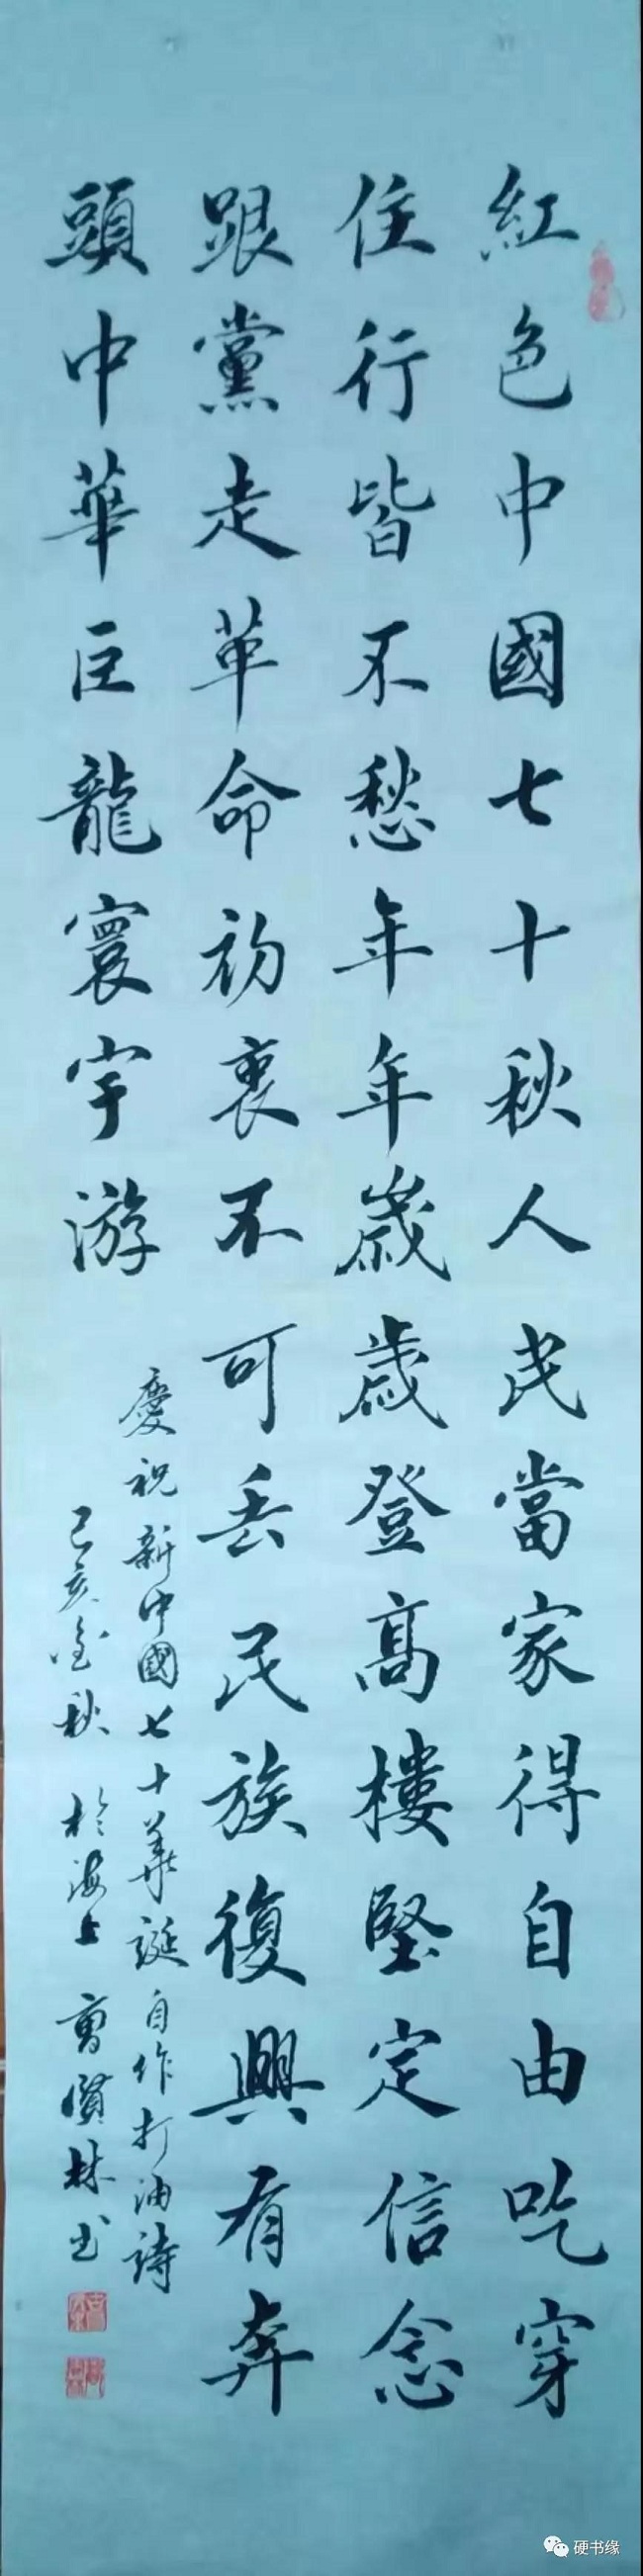 紅色中國七十秋人民當家得自由吃穿
住行皆不愁年年歲歲登高樓堅定信念
跟黨走革命初衷不可丢民族復興有奔
頭中華巨龍寰宇游
慶祝新中國七十華誕自作打油詩
己亥金秋於海上曹賢林书
硬书缘